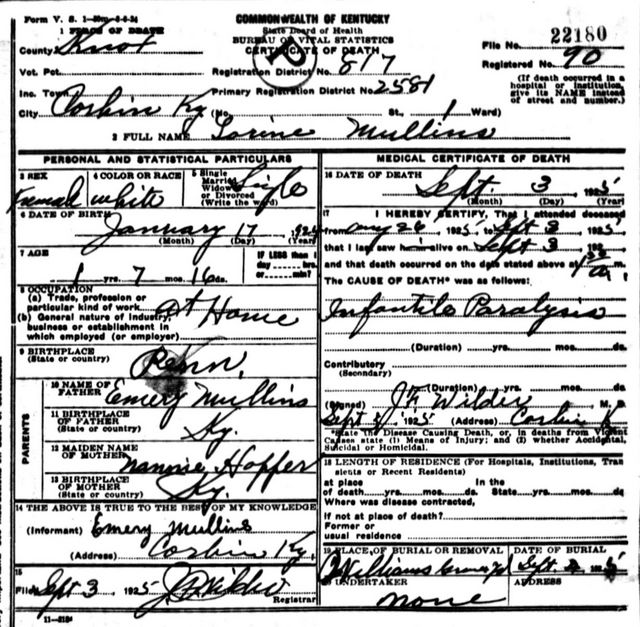 Form V. S. 1
COMMONWEALTH OF KENTUCKY
State Board of Health
BUREAU OF VITAL STATISTICS
CERTIFICATE OF DEATH
1 PLACE OF DEATH
County Knox
File No. 22180
Vot. Pct.
Registration District No. 817
Registered No. 90
Inc. Town
Primary Registration District No. 2581
(If death occurred in a hospital or institution, give its NAME instead of street and number.)
City Corbin Ky (No. St., 1 Ward)
2 FULL NAME Lorine Mullins
PERSONAL AND STATISTICAL PARTICULARS
3 SEX Female
4 COLOR OR RACE white
5 Single Married Widowed or Divorced (Write the word) Sigle
6 DATE OF BIRTH January 17, 1924
(Month) (Day) (Year)
7 AGE
1 yrs. 7 mos. 16 ds.
IF LESS than 1 day hrs. or min.?
8 OCCUPATION
(a) Trade, profession or particular kind of work
(b) General nature of industry, business or establishment in which employed (or employer)
At Home
9 BIRTHPLACE
(State or country)
10 NAME OF FATHER Emery Mullins
11 BIRTHPLACE OF FATHER
(State or country) Ky.
PARENTS
12 MAIDEN NAME OF MOTHER Nannie Hopper
13 BIRTHPLACE OF MOTHER
(State or country) Ky
14 THE ABOVE IS TRUE TO THE BEST OF MY KNOWLEDGE
(Informant) Emery Mullins
(Address) Corbin Ky,
15
Filed Sept 3 1925 Wilder
Registrar
MEDICAL CERTIFICATE OF DEATH
16 DATE OF DEATH Sept. 3, 1925
(Month) (Day) (Year)
17 I HEREBY CERTIFY, That I attended deceased
from Aug 26, 1925, to Sept 3, 1925,
that I last saw h alive on Sept 3, 192
and that death occurred on the date stated above at
The CAUSE OF DEATH was as follows:
Infantile Paralysis
(Duration) yrs. mos. ds.
Contributory
(Secondary)
(Duration) yrs. mos. ds.
(Signed) Wilder M. D.
Sept 1925 (Address) Corbin K
State the Disease Causing Death, or, in deaths from Violent Causes state (1) Means of Injury; and (2) whether Accidental, Suicidal or Homicidal.
18 LENGTH OF RESIDENCE (For Hospitals, Institutions, Transients or Recent Residents)
at place of death yrs. mos. ds. In the State yrs. mos. ds.
Where was disease contracted,
If not at place of death?
Former or usual residence
19 PLACE OF BURIAL OR REMOVAL
DATE OF BURIAL
Williams Sept.
UNDERTAKER
ADDRESS
none